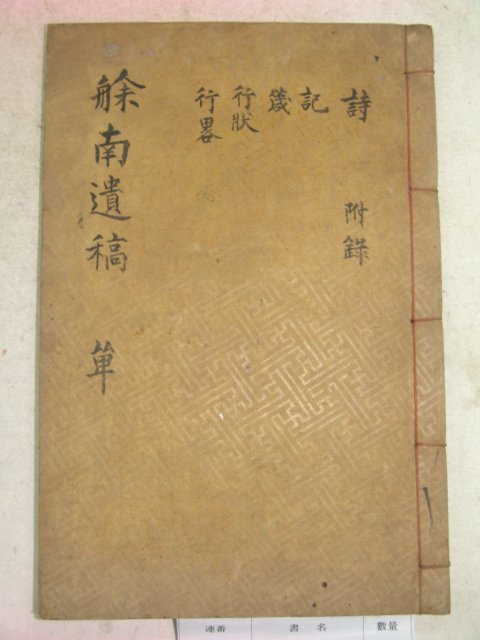 詩 附錄
記
箴
行狀
行畧
艅南遺稿 單
連番 書名 數量